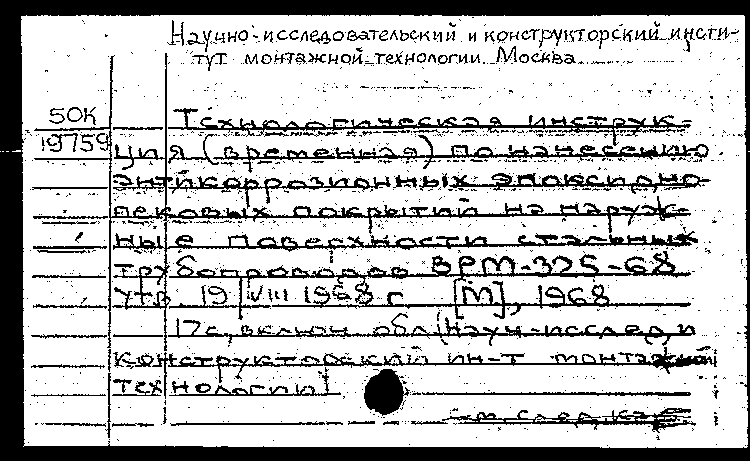 Научно-исследовательский и конструкторский инсти-
тут монтажной технологии. Москва
50К
19759
Технологическая инструк-
ция (временная) по нанесению
антикоррозионных эпоксидно-
пековых покрытий на наруж-
ные поверхности стальных
трубопроводов ВРМ-325-68
утв. 19/VIII 1968 г. [М], 1968
17с, включ обл (Науч-исслед, и
конструкторский ин-т монтажной
технологии)
См. след. к